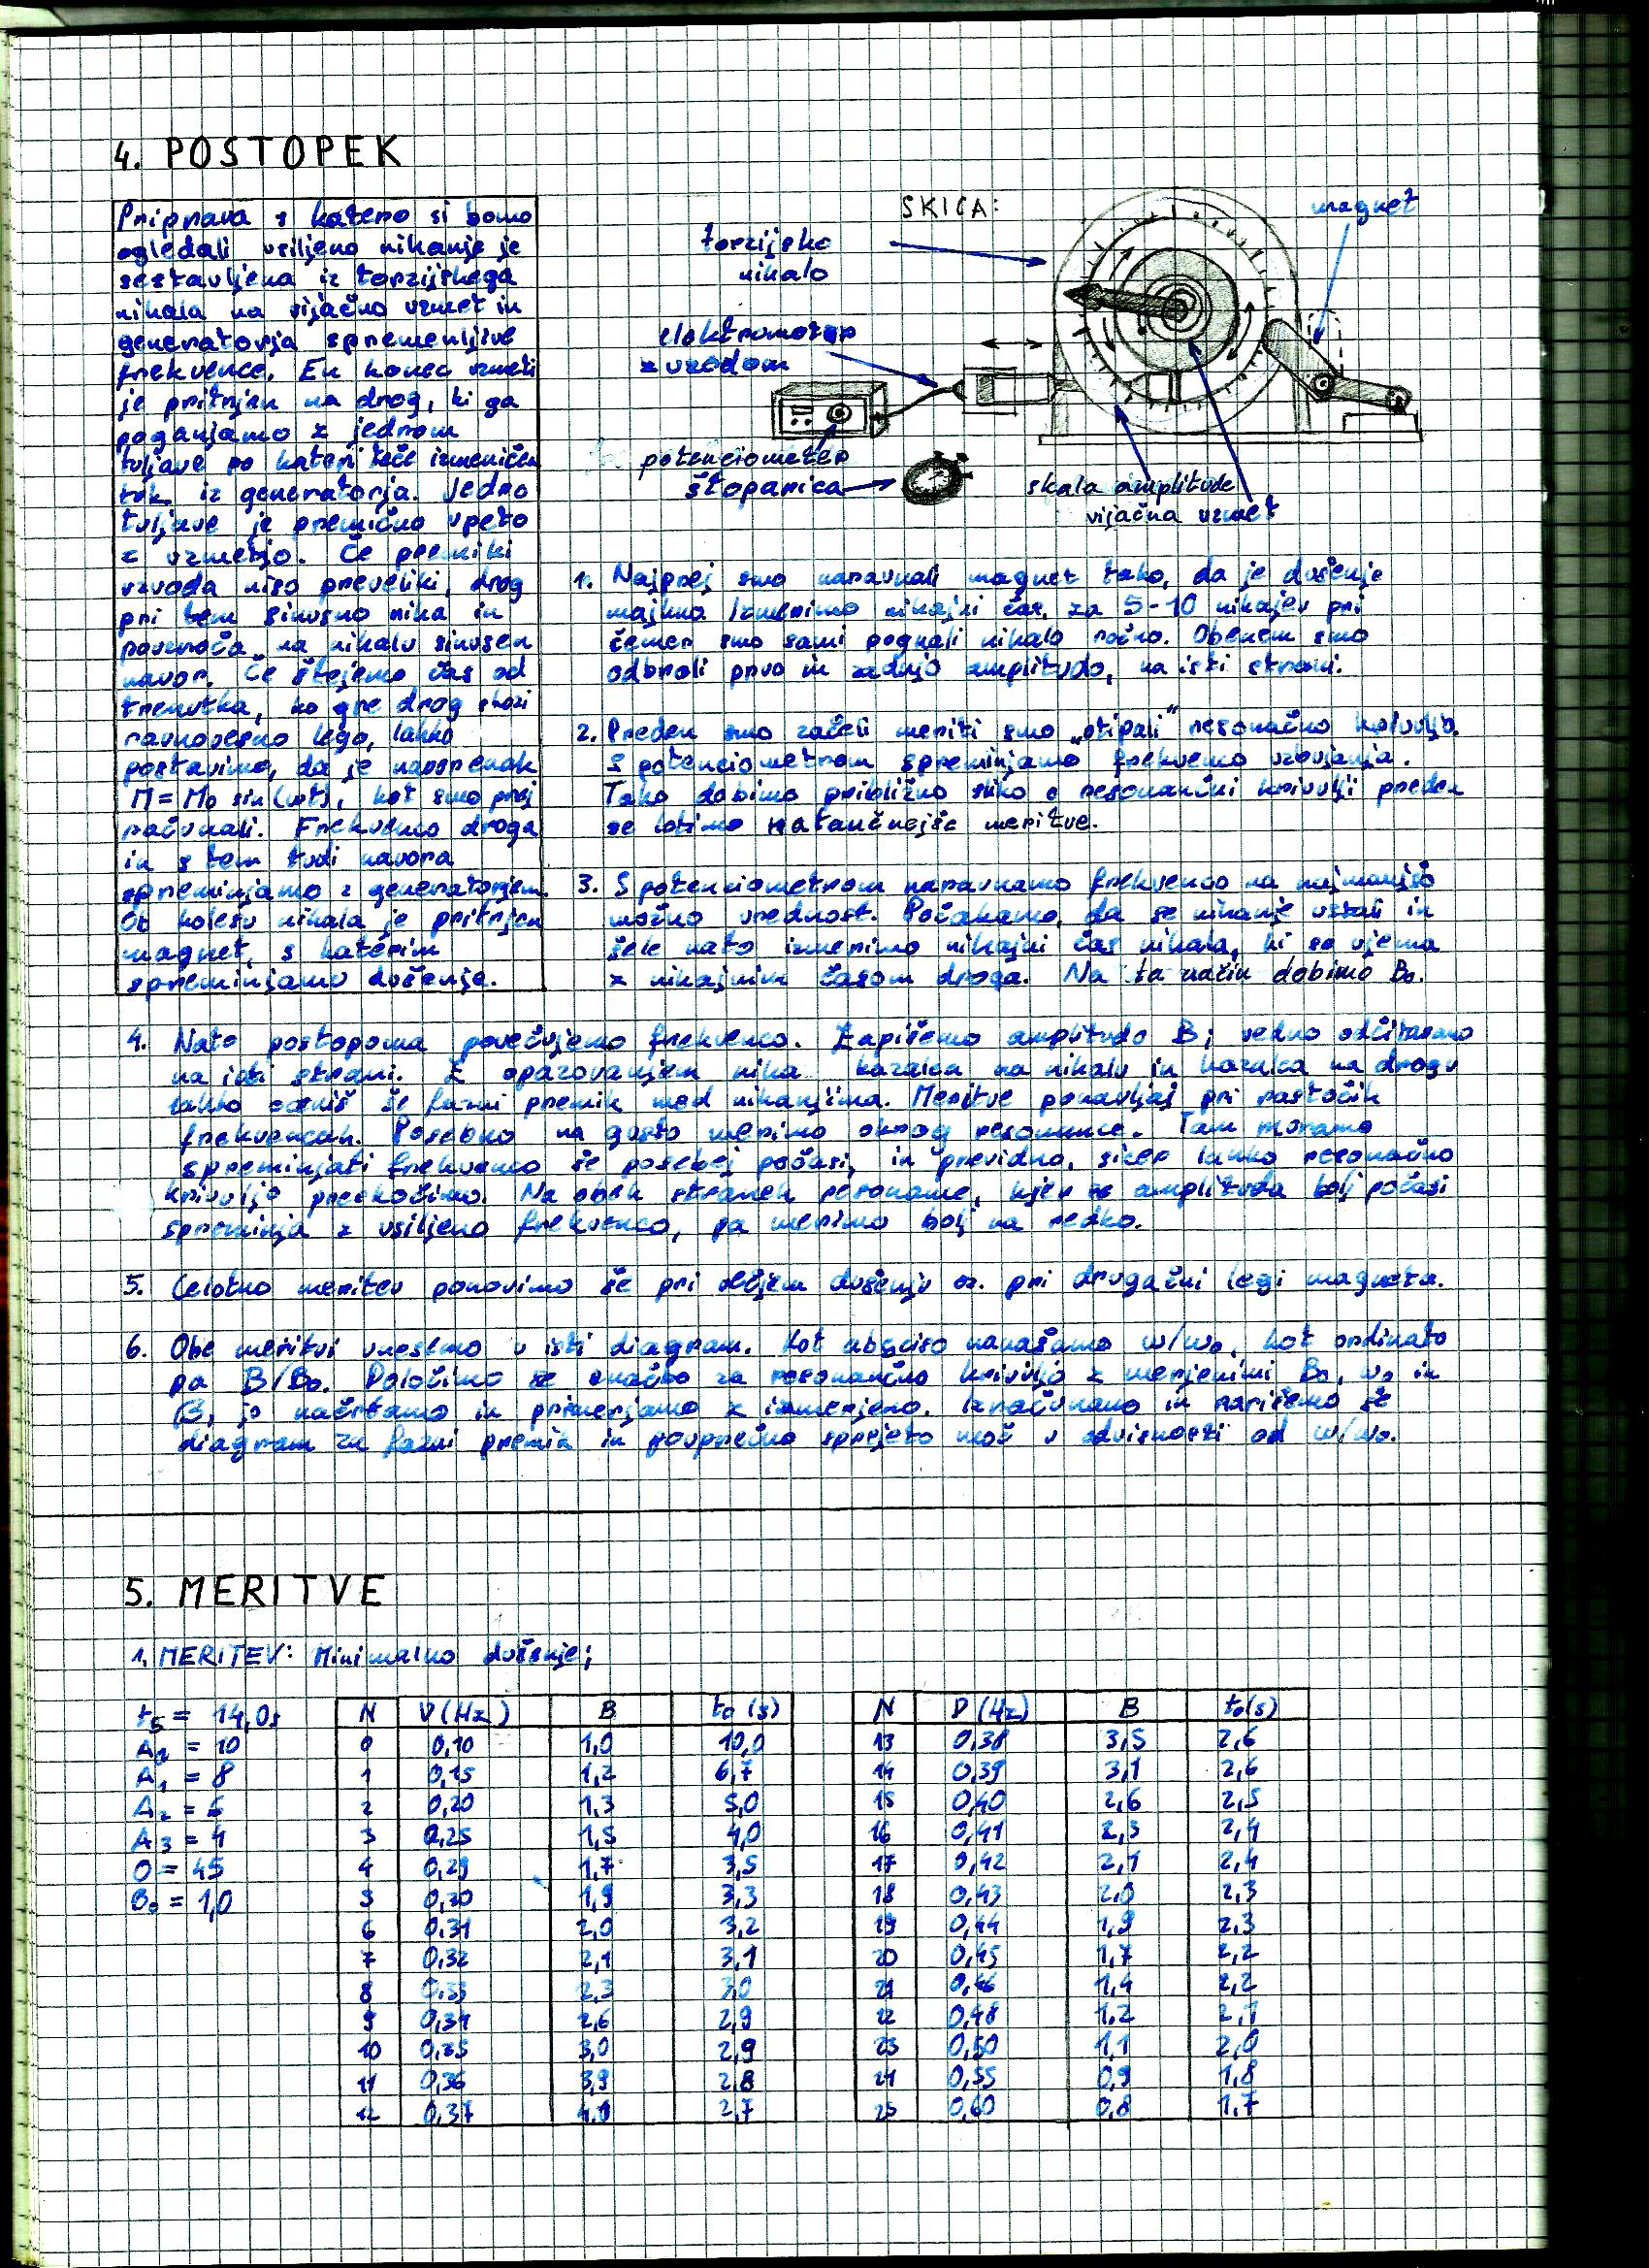 4. POSTOPEK
Priprava s katero si bomo
ogledali vsiljeno nihanje je
sestavljena iz torzijskega
nihala na vijačno vzmet in
generatorja spremenljive
frekvence. En konec vzmeti
je pritrjen na drog, ki ga
poganjamo z jedrom
tuljave po kateri teče izmeničen
tok iz generatorja. Jedro
tuljave je premično vpeto
z vzmetjo. Če premiki
vzvoda niso preveliki, drog
pri tem sinusno niha in
povzroča na nihalu sinusen
navor. Če štejemo čas od
trenutka, ko gre drog skozi
ravnovesno lego, lahko
postavimo, da je navor enak
M = M₀ sin(ωt), kot smo prej
računali. Frekvenco droga
in s tem tudi navora
spreminjamo z generatorjem.
Ob kolesu nihala je pritrjen
magnet, s katerim
spreminjamo dušenje.
SKICA:
magnet
torzijsko
nihalo
elektromotor
z vzvodom
potenciometer
štoparica
skala amplitude
vijačna vzmet
1. Najprej smo naravnali magnet tako, da je dušenje
majhno. Izmerimo nihajni čas, za 5-10 nihajev pri
čemer smo sami pognali nihalo ročno. Obenem smo
odbrali prvo in zadnjo amplitudo, na isti strani.
2. Preden smo začeli meriti smo „otipali" resonačno krivuljo.
S potenciometrom spreminjamo frekvenco vzbujanja.
Tako dobimo približno sliko o resonančni krivulji preden
se lotimo natančnejše meritve.
3. S potenciometrom naravnamo frekvenco na najmanjšo
možno vrednost. Počakamo, da se nihanje ustali in
šele nato izmerimo nihajni čas nihala, ki se ujema
z nihajnim časom droga. Na ta način dobimo B₀.
4. Nato postopoma povečujemo frekvenco. Zapišemo amplitudo B, vedno odčitavamo
na isti strani. Z opazovanjem niha kazalca na nihalu in kazalca na drogu
lahko oceniš še fazni premik med nihanjima. Meritve ponavljaj pri rastočih
frekvencah. Posebno na gosto merimo okrog resonance. Tam moramo
spreminjati frekvenco še posebej počasi, in previdno, sicer lahko resonačno
krivuljo preskočimo. Na obeh straneh resonance, kjer se amplituda bolj počasi
spreminja z vsiljeno frekvenco, pa merimo bolj na redko.
5. Celotno meritev ponovimo še pri večjem dušenju oz. pri drugačni legi magneta.
6. Obe meritvi vnesemo v isti diagram. Kot absciso nanašamo ω/ω₀, kot ordinato
pa B/B₀. Določimo še enačbo za resonančno krivuljo z merjenimi B₀, ω₀ in
β, jo načrtamo in primerjamo z izmerjeno. Izračunamo in narišemo še
diagram za fazni premik in povprečno sprejeto moč v odvisnosti od ω/ω₀.
5. MERITVE
1. MERITEV: Minimalno dušenje;
t₅ = 14,0s
A₀ = 10
A₁ = 8
A₂ = 6
A₃ = 4
O = 45
B₀ = 1,0
N ν(Hz) B t₀(s)
0 0,10 1,0 10,0
1 0,15 1,2 6,7
2 0,20 1,3 5,0
3 0,25 1,5 4,0
4 0,29 1,7 3,5
5 0,30 1,9 3,3
6 0,31 2,0 3,2
7 0,32 2,1 3,1
8 0,33 2,3 3,0
9 0,34 2,6 2,9
10 0,35 3,0 2,9
11 0,36 3,9 2,8
12 0,37 2,7
N ν(Hz) B t₀(s)
13 0,38 3,5 2,6
14 0,39 3,1 2,6
15 0,40 2,6 2,5
16 0,41 2,3 2,4
17 0,42 2,1 2,4
18 0,43 2,0 2,3
19 0,44 1,9 2,3
20 0,45 1,7 2,2
21 0,46 1,4 2,2
22 0,48 1,2 2,1
23 0,50 1,1 2,0
24 0,55 0,9 1,8
25 0,60 0,8 1,7